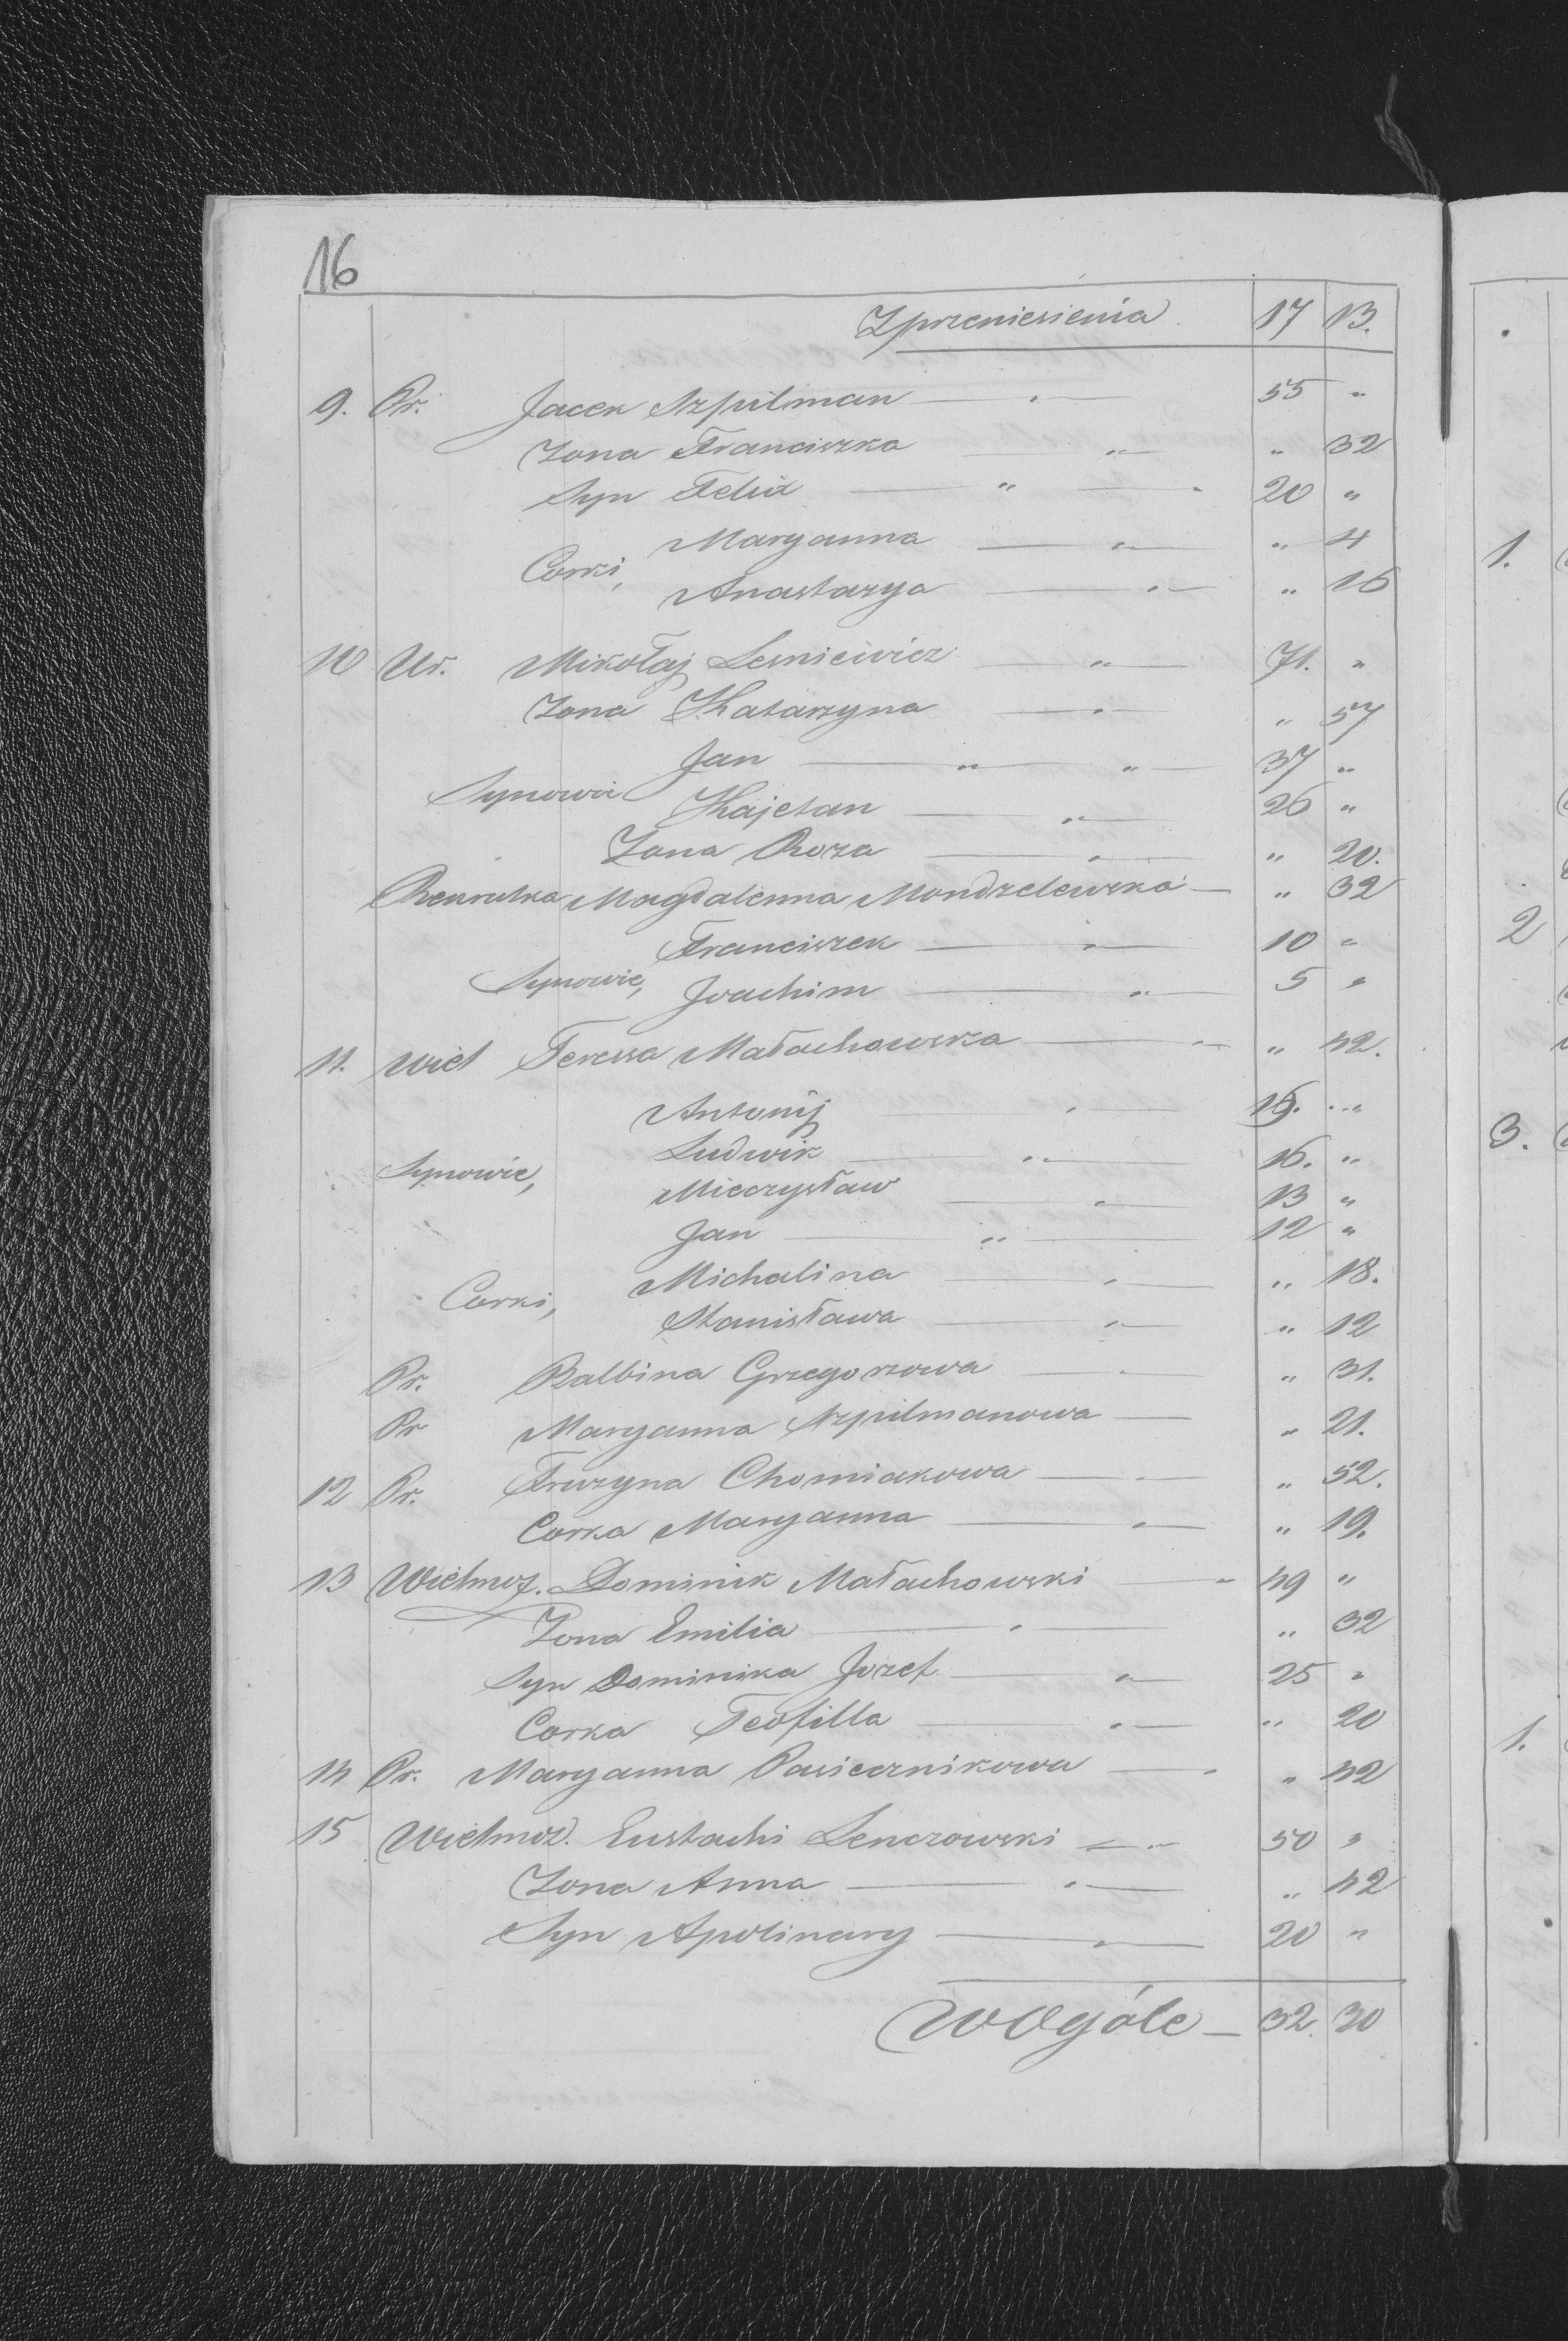 16
Zprzeniesienia 17 13.
9. Pr. Jacek Szpilman 55 "
Zona Franciszka " 32
Syn Felix 20 "
Maryanna " 4
Corki,
Anastazya " 16
10 Ur. Mikołaj Lesniewicz 71. "
Zona Katarzyna " 57
Jan 37 "
Synowie
Kajetan 26 "
Zona Roza " 20.
Rekrutka Magdalenna Mondzelewska " 32
Franciszek 10 "
Synowie,
Joachim 5 "
11. Wiel Teressa Małachowska " 42.
Antonij "
Ludwik 16. "
Synowie,
Mieczysław 13 "
Jan 12 "
Michalina " 18.
Corki,
Stanisława " 12
Pr. Balbina Grzegorzowa " 31.
Pr Maryanna Szpilmanowa " 21.
12 Pr. Fruzyna Chomiakowa " 52.
Corka Maryanna " 19.
13 Wielmoz. Dominik Małachowski 49 "
Zona Emilia " 32
Syn Dominika Jozef 25 "
Corka Teofilla " 20
14 Pr. Maryanna Pasiecznikowa " 42
15 Wielmoz. Eustachi Lenczowski 50 "
Zona Anna " 42
Syn Apolinary 20 "
WOgóle 32. 30
1.
2
3.
1.